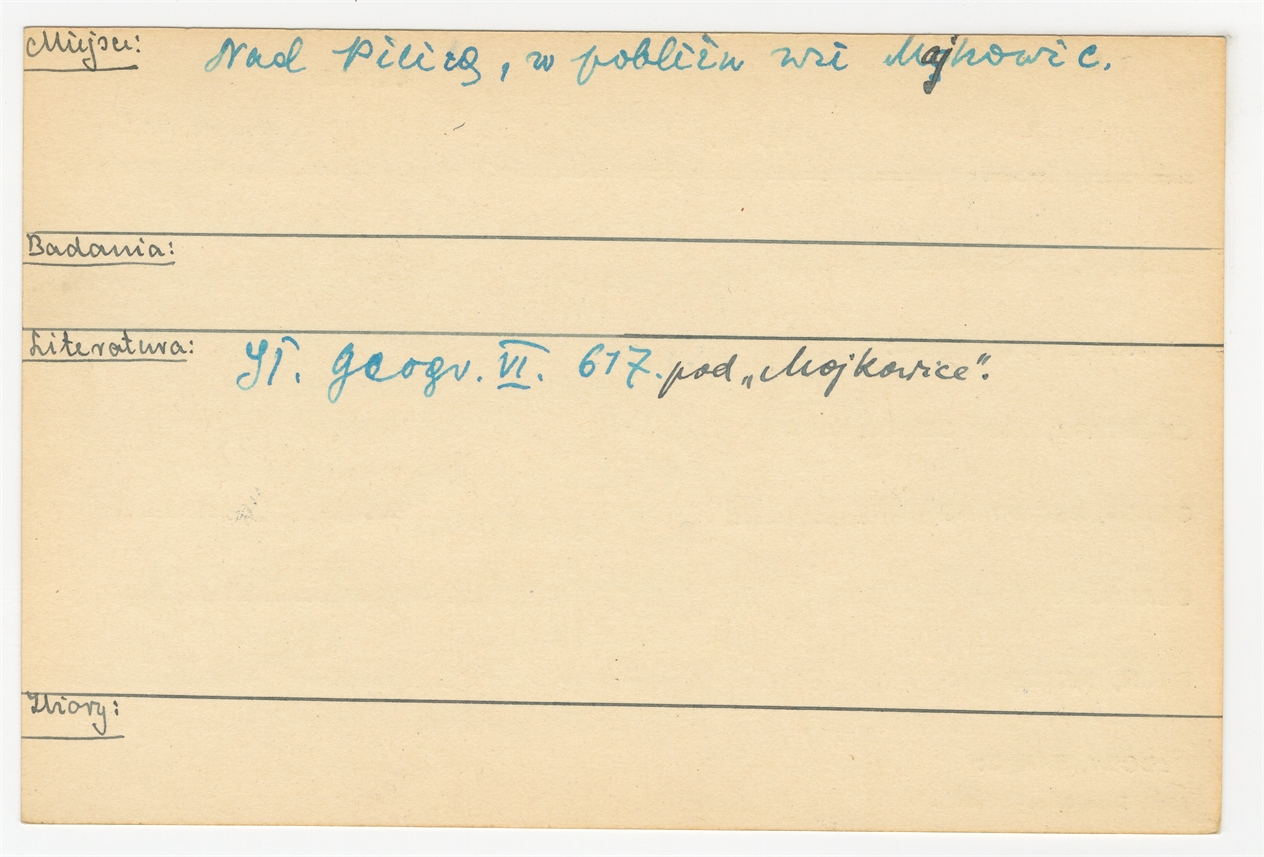 Miejsce: Nad Pilicą, w pobliżu wsi Majkowic.
Badania:
Literatura: Sł. Geogr. VI. 617. pod „Mojkowice”.
Zbiory: